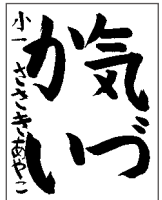 気づ
かい
小一 ささきあやこ